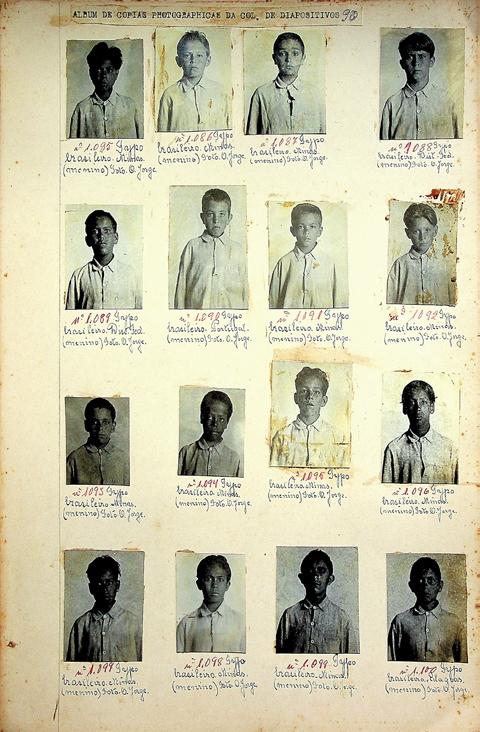 ALBUM DE COPIAS PHOTOGRAPHICAS DA COL. DE DIAPOSITIVOS 90
nº 1.095 Typo
brasileiro. Minas.
(menino) Foto. O. Jorge.
nº 1.086 Typo
brasileiro. Minas.
(menino) Foto. O. Jorge.
nº 1.087 Typo
brasileiro. Minas.
(menino) Foto. O. Jorge.
nº 1.088 Typo
brasileiro. Dist. Fed.
(menino) Foto. O. Jorge.
nº 1.089 Typo
brasileiro. Dist. Fed.
(menino) Foto. O. Jorge.
nº 1.090 Typo
brasileiro. Portugal.
(menino) Foto. O. Jorge.
nº 1.091 Typo
brasileiro Minas.
(menino) Foto. O. Jorge.
1092 Typo
brasileiro. Minas.
(menino) Foto. O. Jorge.
nº 1093 Typo
brasileiro. Minas.
(menino) Foto. O. Jorge.
nº 1.094 Typo
brasileiro. Minas.
(menino) Foto. O. Jorge.
nº 1.095 Typo
brasileiro. Minas.
(menino) Foto. O. Jorge.
nº 1.096 Typo
brasileiro. Minas.
(menino) Foto. O. Jorge.
nº 1.099 Typo
brasileiro. Minas.
(menino) Foto. O. Jorge.
nº 1.098 Typo
brasileiro. Minas.
(menino) Foto. O. Jorge.
nº 1.099 Typo
brasileiro. Minas.
(menino) Foto. O. Jorge.
nº 1.100 Typo
brasileiro. Alagôas.
(menino) Foto. O. Jorge.